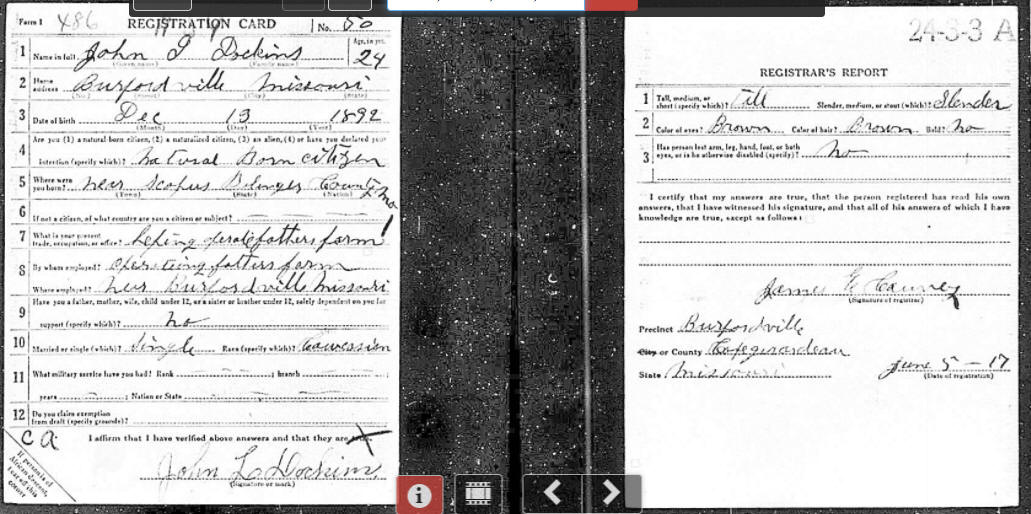 Form 1 486 REGISTRATION CARD No. 50
1 Name in full John Dockins Age, in yrs. 24
(Given name) (Family name)
2 Home address Burfordville Missouri
(No.) (Street) (City) (State)
3 Date of birth Dec 13 1892
(Month) (Day) (Year)
Are you (1) a natural-born citizen, (2) a naturalized citizen, (3) an alien, (4) or have you declared your
4 intention (specify which)? Natural Born citizen
5 Where were you born? near Scopus County Mo
(Town) (State) (Nation)
6 If not a citizen, of what country are you a citizen or subject?
7 What is your present trade, occupation, or office? fathers farm
8 By whom employed? operating fathers farm
Where employed? near Burfordville Missouri
9 Have you a father, mother, wife, child under 12, or a sister or brother under 12, solely dependent on you for
support (specify which)? no
10 Married or single (which)? Single Race (specify which)? Caucasian
11 What military service have you had? Rank ; branch ;
years ; Nation or State
12 Do you claim exemption from draft (specify grounds)?
C a I affirm that I have verified above answers and that they are true.
John L Dockins
(Signature or mark)
If person is of African descent, tear off this corner
24-3-3 A
REGISTRAR'S REPORT
1 Tall, medium, or short (specify which)? Tall Slender, medium, or stout (which)? Slender
2 Color of eyes? Brown Color of hair? Brown Bald? no
3 Has person lost arm, leg, hand, foot, or both eyes, or is he otherwise disabled (specify)? no
I certify that my answers are true, that the person registered has read his own
answers, that I have witnessed his signature, and that all of his answers of which I have
knowledge are true, except as follows:
James E
(Signature of registrar)
Precinct Burfordville
City or County Capegirardeau
State Missouri June 5-17
(Date of registration)